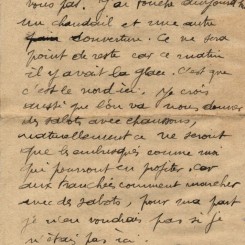 vous pas. J'ai touché aujourd'hui
un chandail et une autre
couverture. Ce ne sera
point de reste car ce matin
il y avait de la glace. C'est que
c'est le nord ici. Je crois
aussi que l'on va nous donner
des sabots avec chaussons,
naturellement ce ne seront
que les embusqués comme moi
qui pourront en profiter, car
aux tranchées, comment marcher
avec des sabots, pour ma part
je m'en voudrais pas si je
n'étais pas ici.